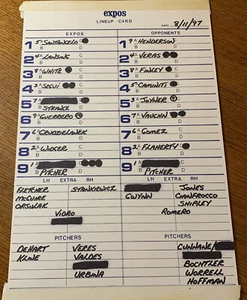 expos
LINEUP CARD
DATE 8/11/97
EXPOS
OPPONENTS
1 SANTANGELO
1 HENDERSON
2 LANSING
2 VERAS
3 WHITE
3 FINLEY
4 SEGUI
4 CAMINITI
5 STRANGE
5 JOYNER
6 GUERRERO
6 VAUGHN
7 GRUDZIELANEK
7 GOMEZ
8 WIDGER
8 FLAHERTY
9 PITCHER
9 PITCHER
LH EXTRA RH
LH EXTRA RH
FLETCHER STANKIEWICZ
McGUIRE
ORSULAK
VIDRO
GWYNN JONES
CIANFROCCO
SHIPLEY
ROMERO
PITCHERS
PITCHERS
DEHART VERES
KLINE VALDES
URBINA
CUNNANE
BOCHTLER
WORRELL
HOFFMAN